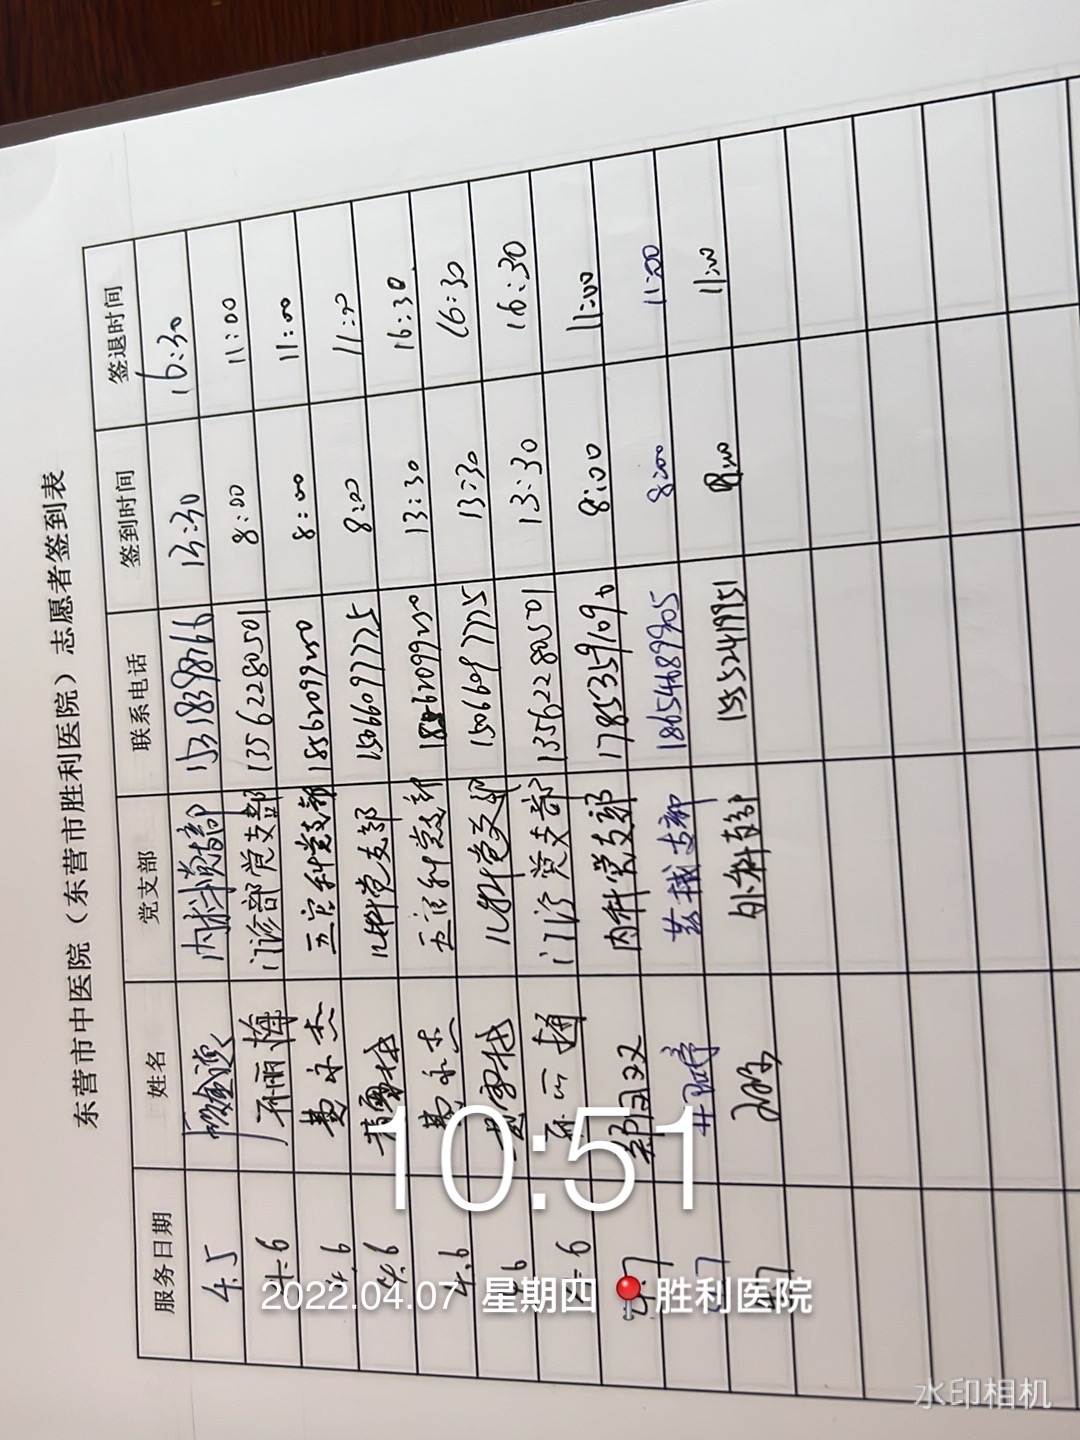 东营市中医院（东营市胜利医院）志愿者签到表
服务日期 姓名 党支部 联系电话 签到时间 签退时间
4.5 内科党支部 15318398766 13:30 16:30
4.6 孙丽梅 门诊部党支部 13562280501 8:00 11:00
4.6 五官科党支部 18562099250 8:00 11:00
4.6 儿科党支部 15066097775 8:00 11:00
4.6 五官科党支部 18562099250 13:30 16:30
6 儿科党支部 15066097775 13:30 16:30
6 门诊党支部 13562280501 13:30 16:30
4.7 郑双双 内科党支部 8:00 11:00
7 支部 18654689905 8:00 11:00
4.7 外科支部 1552419951 11:00
10:51
2022.04.07 星期四 胜利医院
水印相机